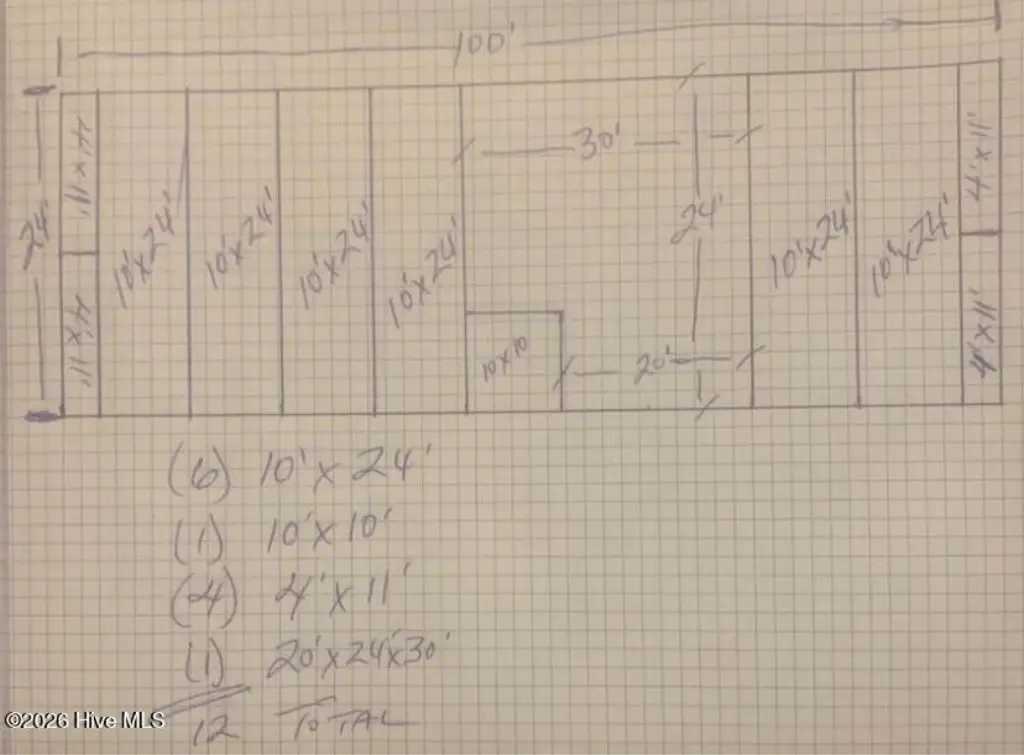 100'
24'
4'x11'
4'x11'
10'x24'
10'x24'
10'x24'
10'x24'
30'
24'
10x10
20'
10'x24'
10'x24'
4'x11'
4'x11'
(6) 10'x24'
(1) 10'x10'
(4) 4'x11'
(1) 20'x24'x30'
12 TOTAL
©2026 Hive MLS